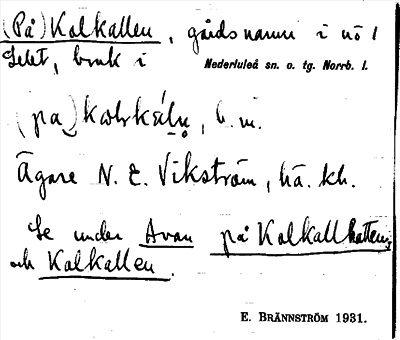 (På) Kalkallen, gårdsnamn i nö /
Selet, bruk i Nederluleå sn. o. tg. Norrb. l.
(pa) b. m.
Ägare N. E. Vikström, hä. kh.
Se under Avan på Kalkallhatten,
och Kalkallen.
E. BRÄNNSTRÖM 1931.